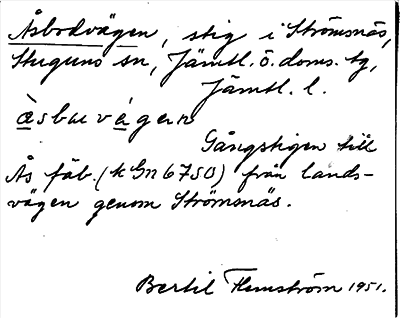 Åsbodvägen, stig i Strömsnäs,
Stuguns sn, Jämtl. ö. doms. tg,
Jämtl. l.
àsbuvégen
Gångstigen till
Ås fäb. (k Gn 6750) från lands-
vägen genom Strömsnäs.
Bertil Flemström 1951.